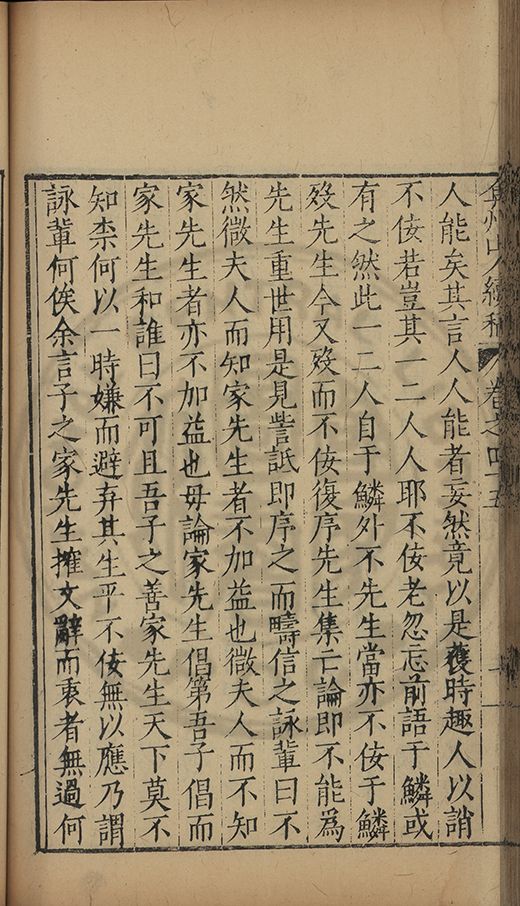 弇州山人續稿 卷之四五
人能矣其言人人能者妄然竟以是獲時趣人以誚
不佞若豈其一二人人耶不佞老忽忘前語于鱗或
有之然此一二人自于鱗外不先生當亦不佞于鱗
歿先生今又歿而不佞復序先生集亡論即不能爲
先生重世用是見訾詆即序之而疇信之詠輩曰不
然微夫人而知家先生者不加益也微夫人而不知
家先生者亦不加益也毋論家先生倡第吾子倡而
家先生和誰曰不可且吾子之善家先生天下莫不
知柰何以一時嫌而避弃其生平不佞無以應乃謂
詠輩何俟余言子之家先生擁文辭而東者無過何